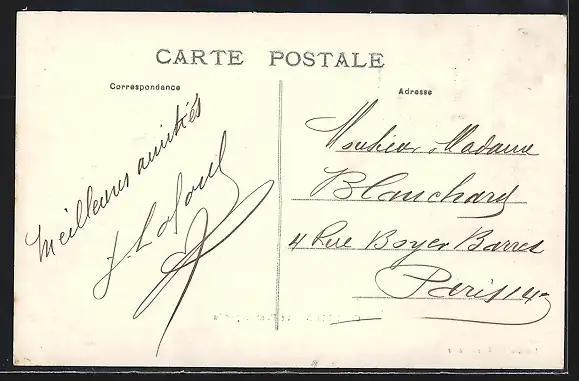 CARTE POSTALE
Correspondance
Adresse
Meilleures amitiés
Monsieur Madame
Blanchard
4 Rue Boyer Barret
Paris 14e